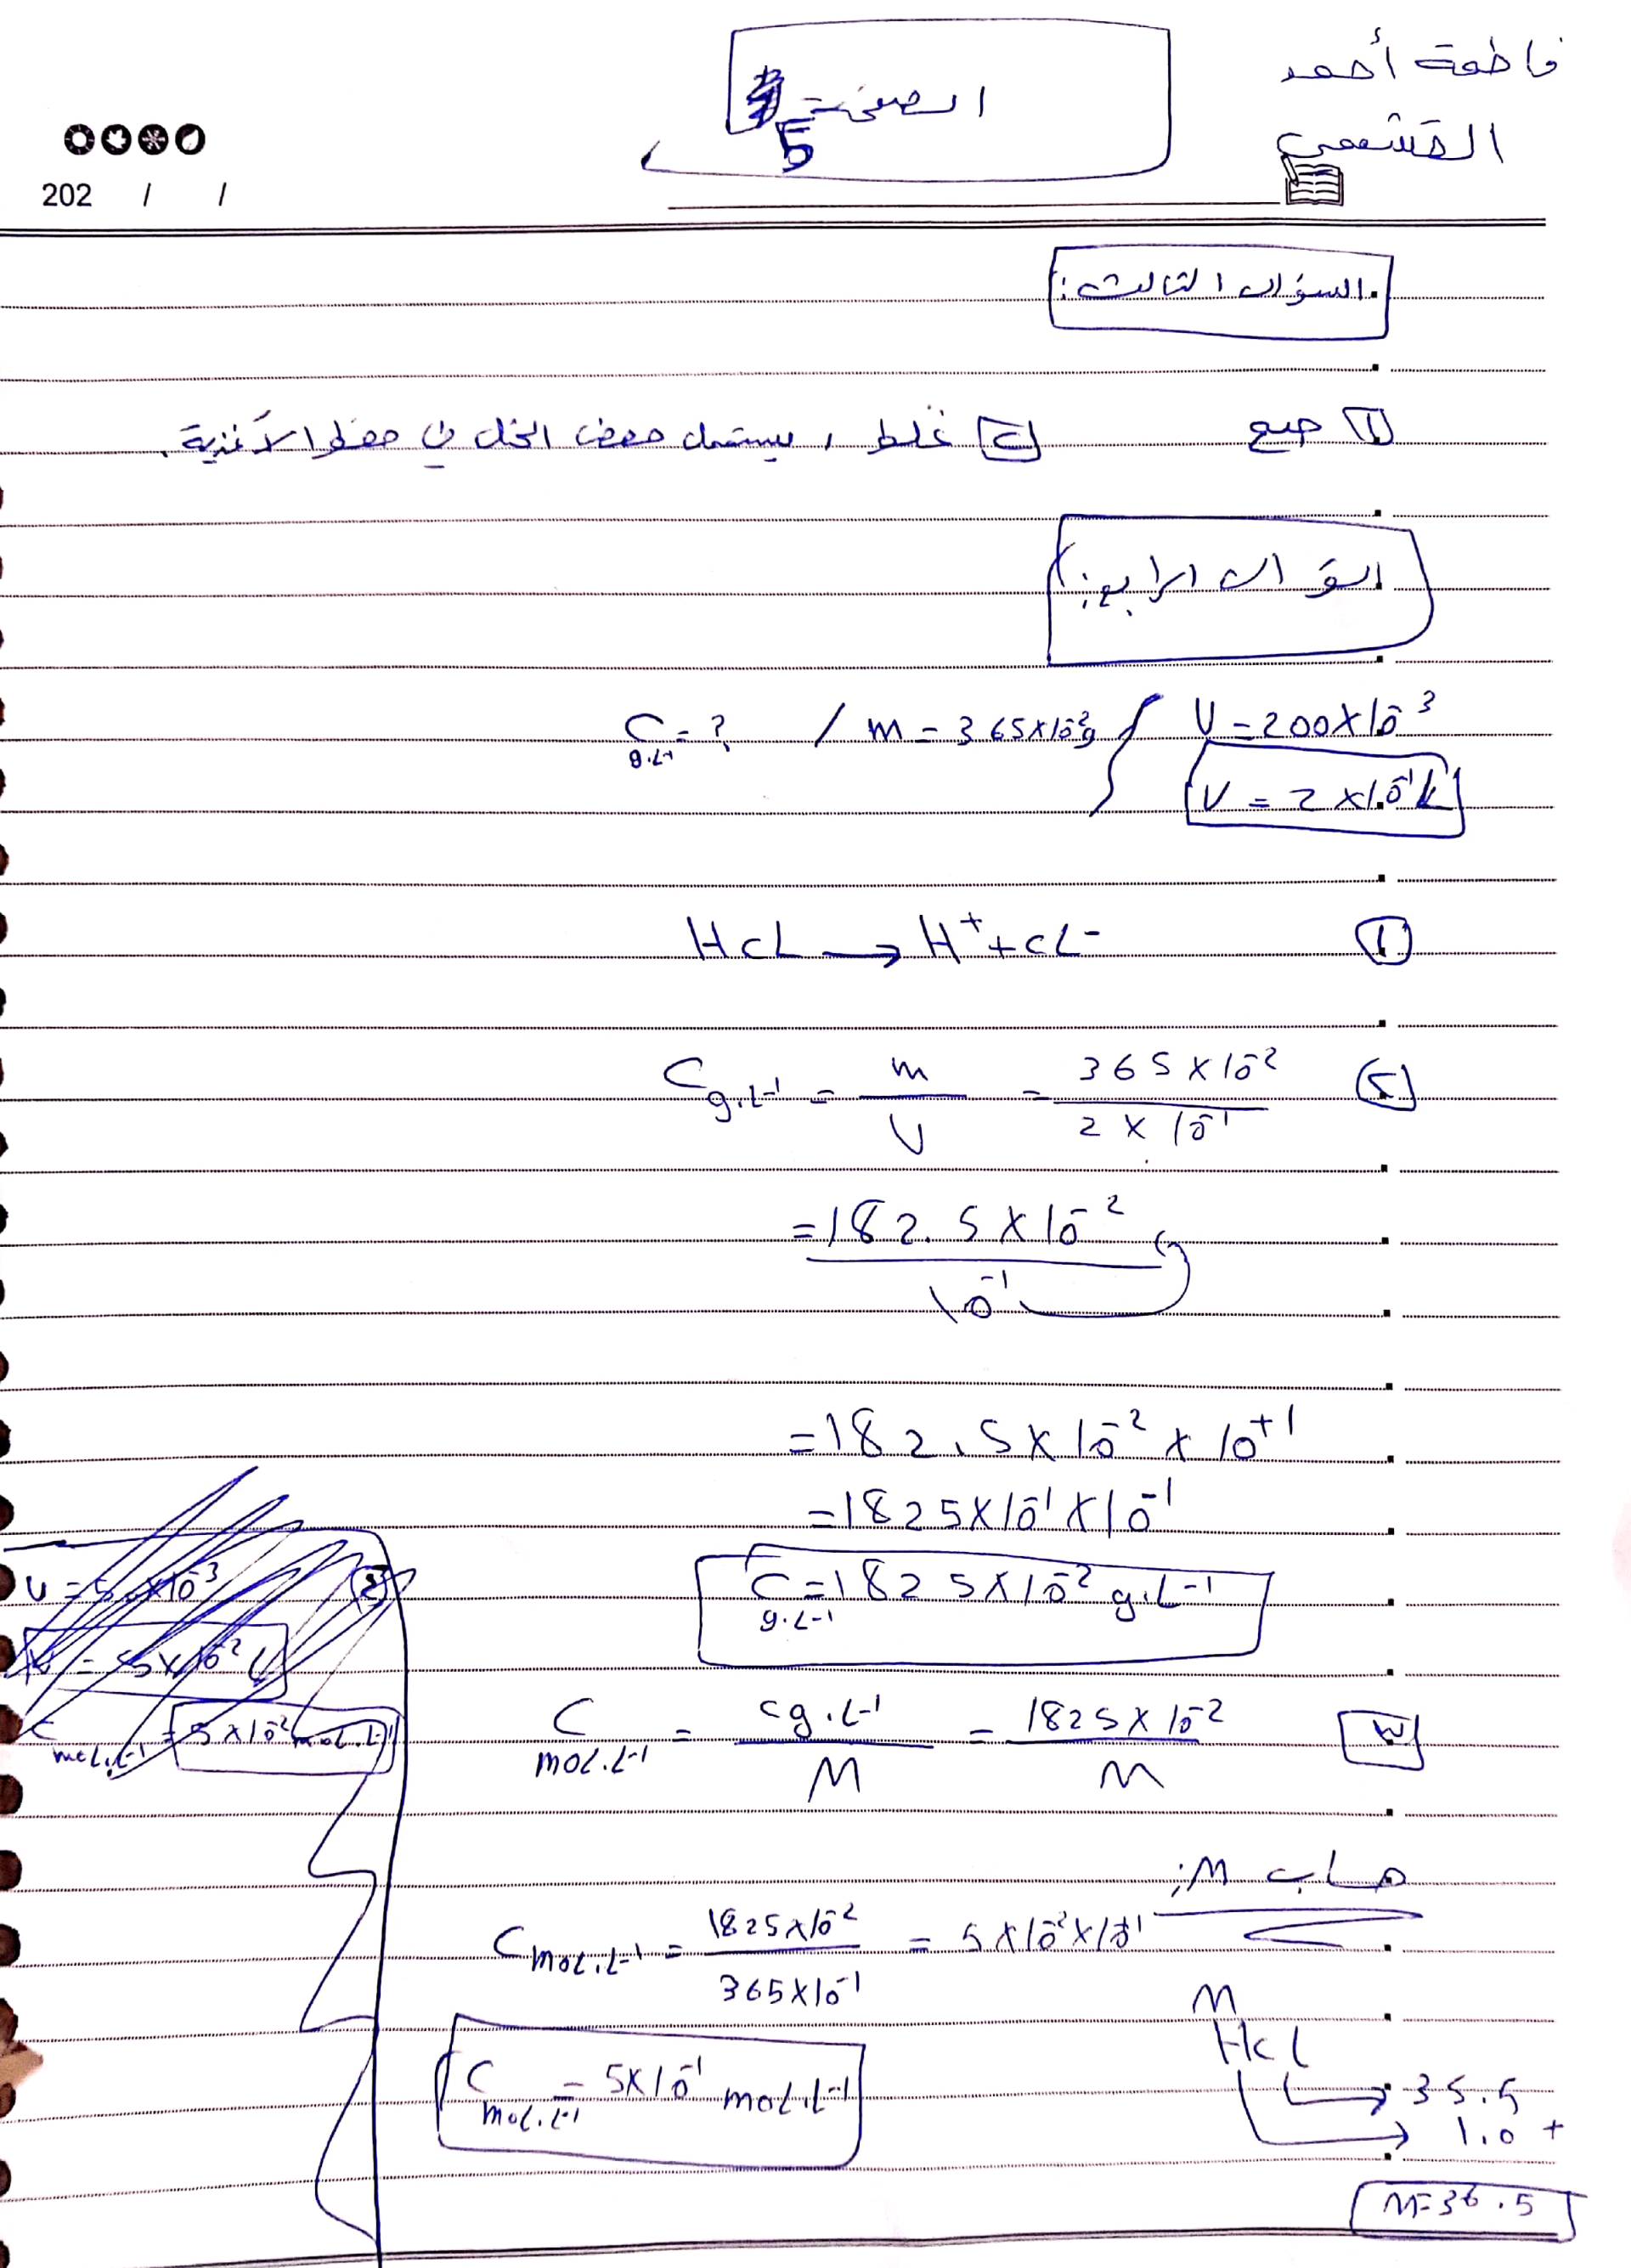 فاطمة أحمد
القشعمي
الصفحة 5
202 / /
السؤال الثالث:
1 صح
2 غلط، يستعمل حمض الخل في حفظ الأغذية.
السؤال الرابع:
V = 200×10⁻³ / m = 365×10⁻²g / C g.L⁻¹ = ?
V = 2×10⁻¹ L
① HCL → H⁺ + CL⁻
② C g.L⁻¹ = m/V = 365×10⁻² / 2×10⁻¹
= 182.5×10⁻² / 10⁻¹
= 182.5×10⁻² × 10⁺¹
= 1825×10⁻¹×10⁻¹
C g.L⁻¹ = 1825×10⁻² g.L⁻¹
٣ C moL.L⁻¹ = C g.L⁻¹ / M = 1825×10⁻² / M
حساب M:
C moL.L⁻¹ = 1825×10⁻² / 365×10⁻¹ = 5×10⁻²×10⁺¹
M
HCl
35.5
1.0 +
M=36.5
C moL.L⁻¹ = 5×10⁻¹ moL.L⁻¹
V = 5×10⁻² L
C moL.L⁻¹ = 5×10⁻² moL.L⁻¹